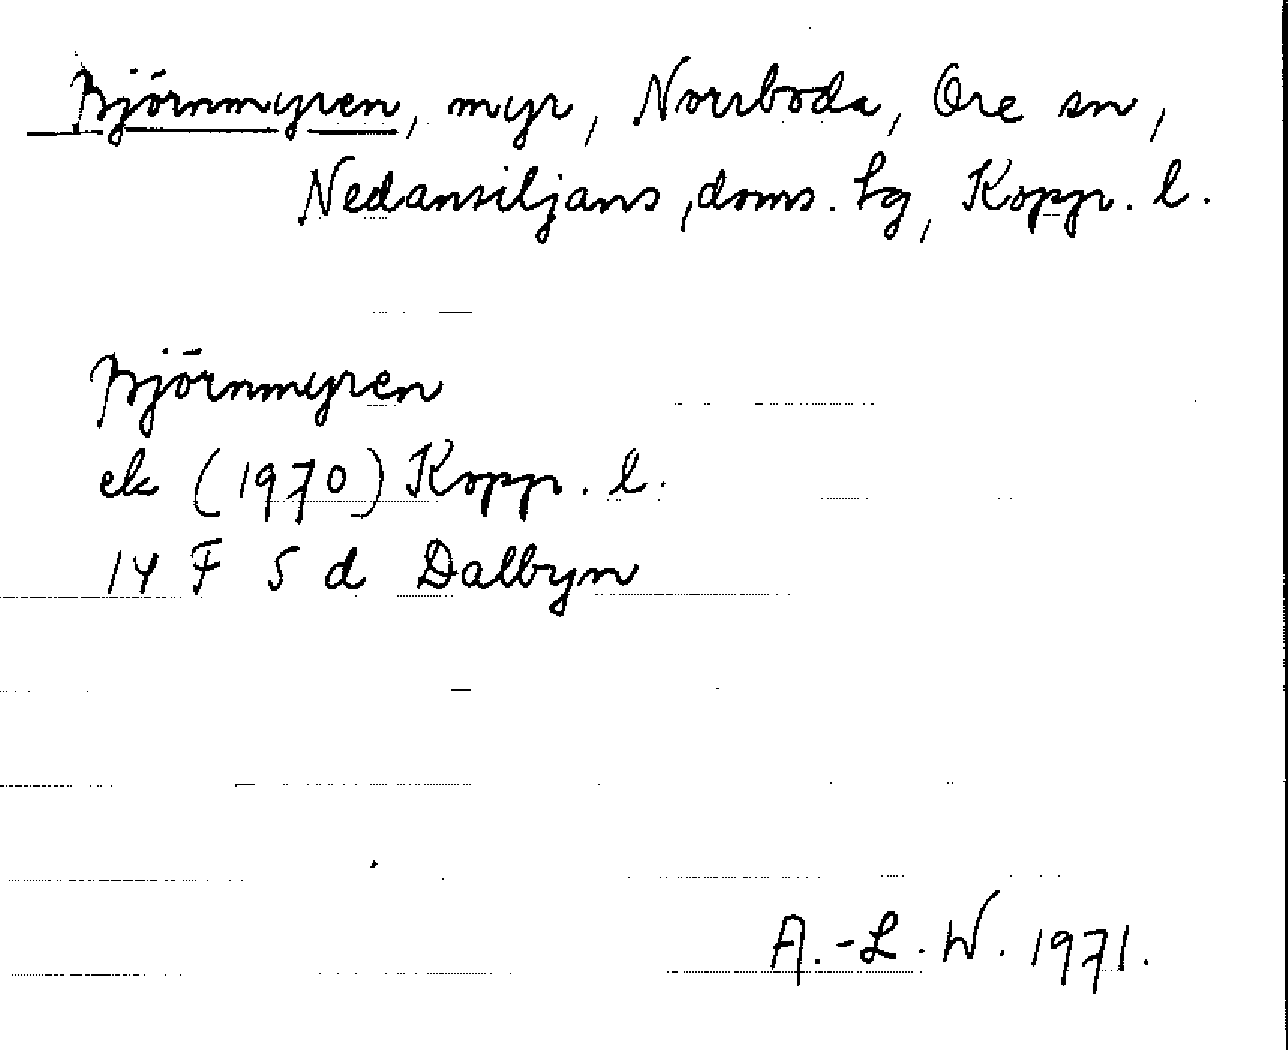 Björnmyren, myr, Norrboda, Ore sn,
Nedansiljans, doms. hg, Kopp. l.
Björnmyren
ek (1970) Kopp. l.
14 F 5 d Dalbyn
A.-L. W. 1971.